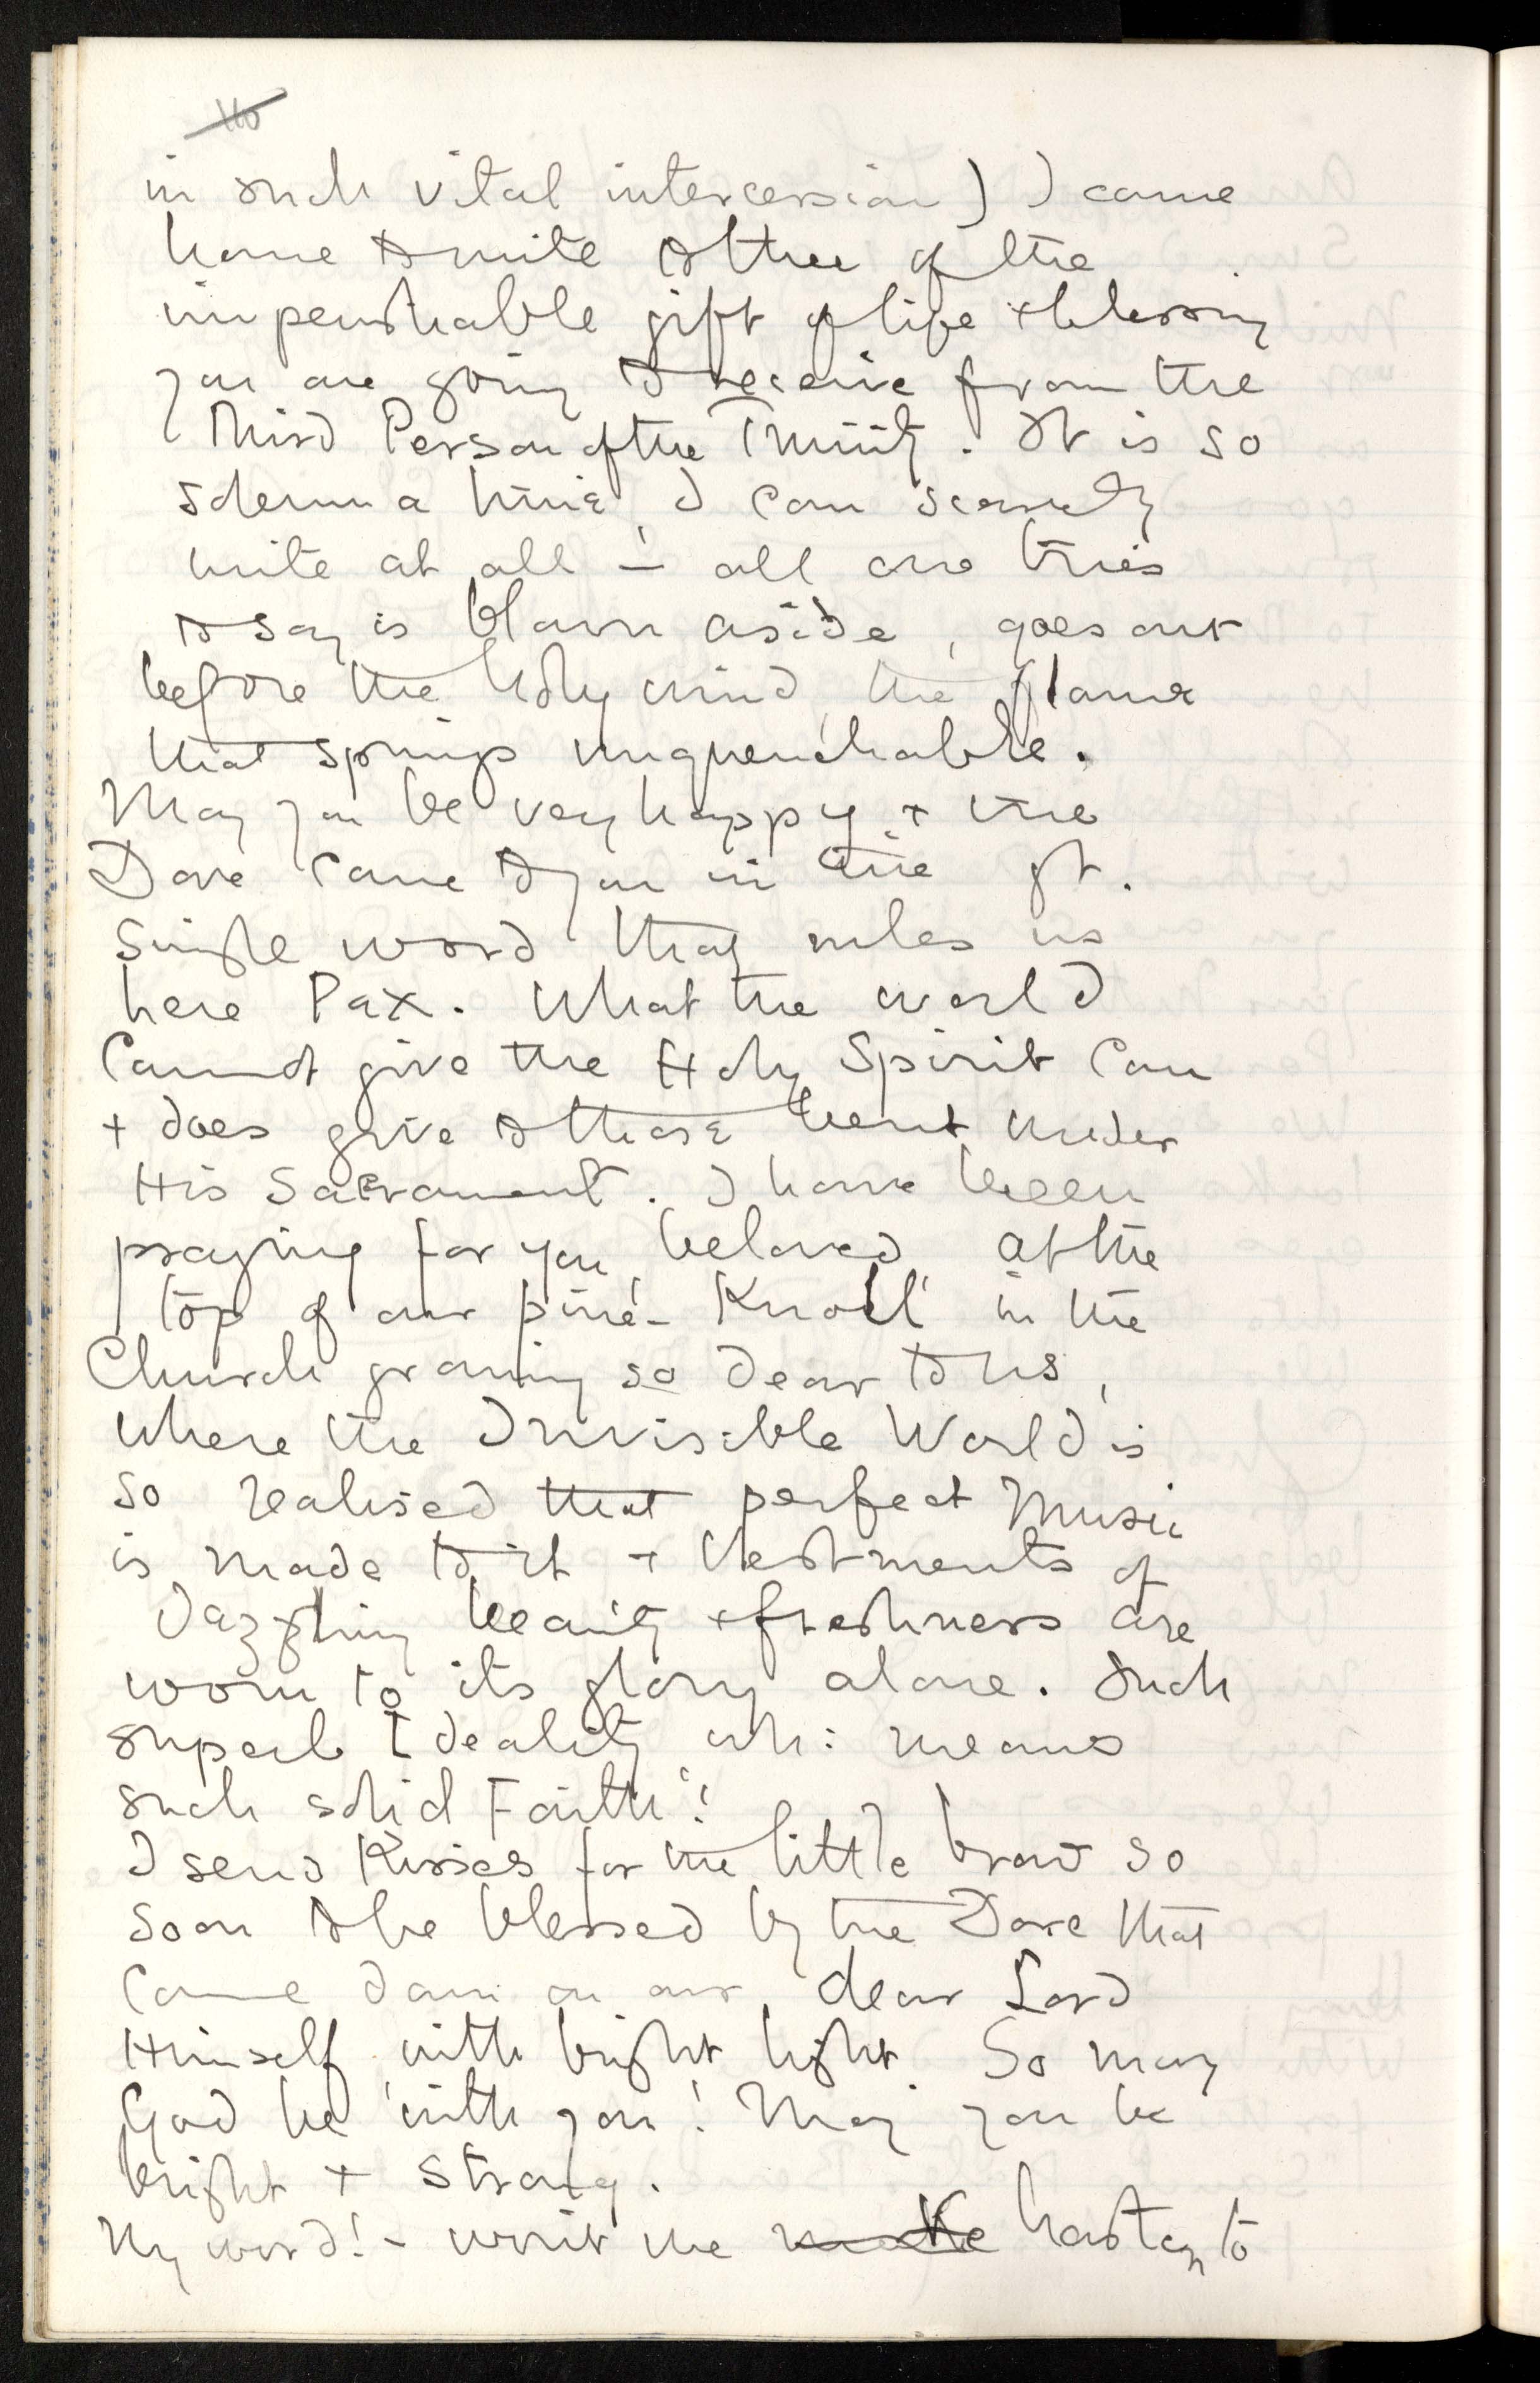 110
in such vital intercession) I came
home to write to thee of the
imperishable gift of life + blessing
you are going to receive from the
Third Person of the Trinity. It is so
solemn a time, I can scarcely
write at all — all one tries
to say is blown aside, goes out
before the holy wind, the flame
that springs unquenchable.
May you be very happy + the
Dove come to you in the gt.
single word that rules us
here Pax. What the world
cannot give the Holy Spirit can
+ does give to those bent under
His Sacrament. I have been
praying for you, beloved, at the
top of our 'pine-Knoll' in the
Church growing so dear to us,
where the Invisible World is
so realised that perfect Music
is made to it + Vestments of
dazzling beauty + freshness are
worn to its glory alone. Such
superb Ideality wh: means
such solid Faith!
I send Kisses for the little brow so
soon to be blessed by the Dove that
came down on our dear Lord
Himself with bright light. So may
God be with you! May you be
bright + strong.
My word! - won't we make hasten to